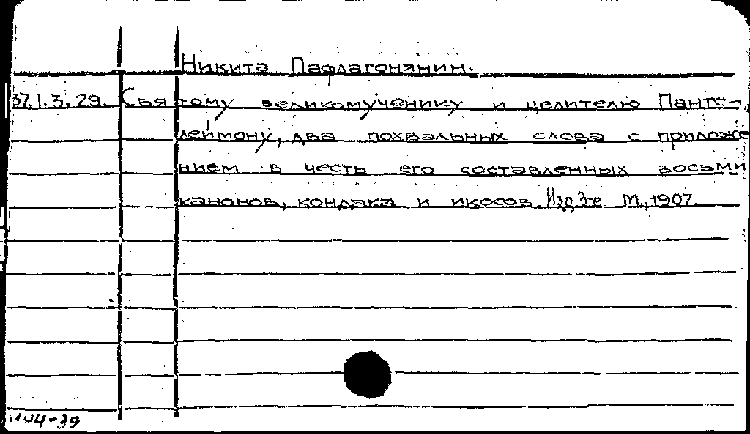 Никита Пафлагонянин.
37.1.3.29. Святому великомученику и целителю Панте-
леймону, два похвальных слова с приложе
нием в честь его составленных восьми
канонов, кондака и икосов. Изд. 3-е М., 1907